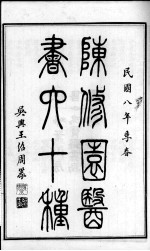 民國八年季春
陳修園醫
書六十種
吳興王治周署